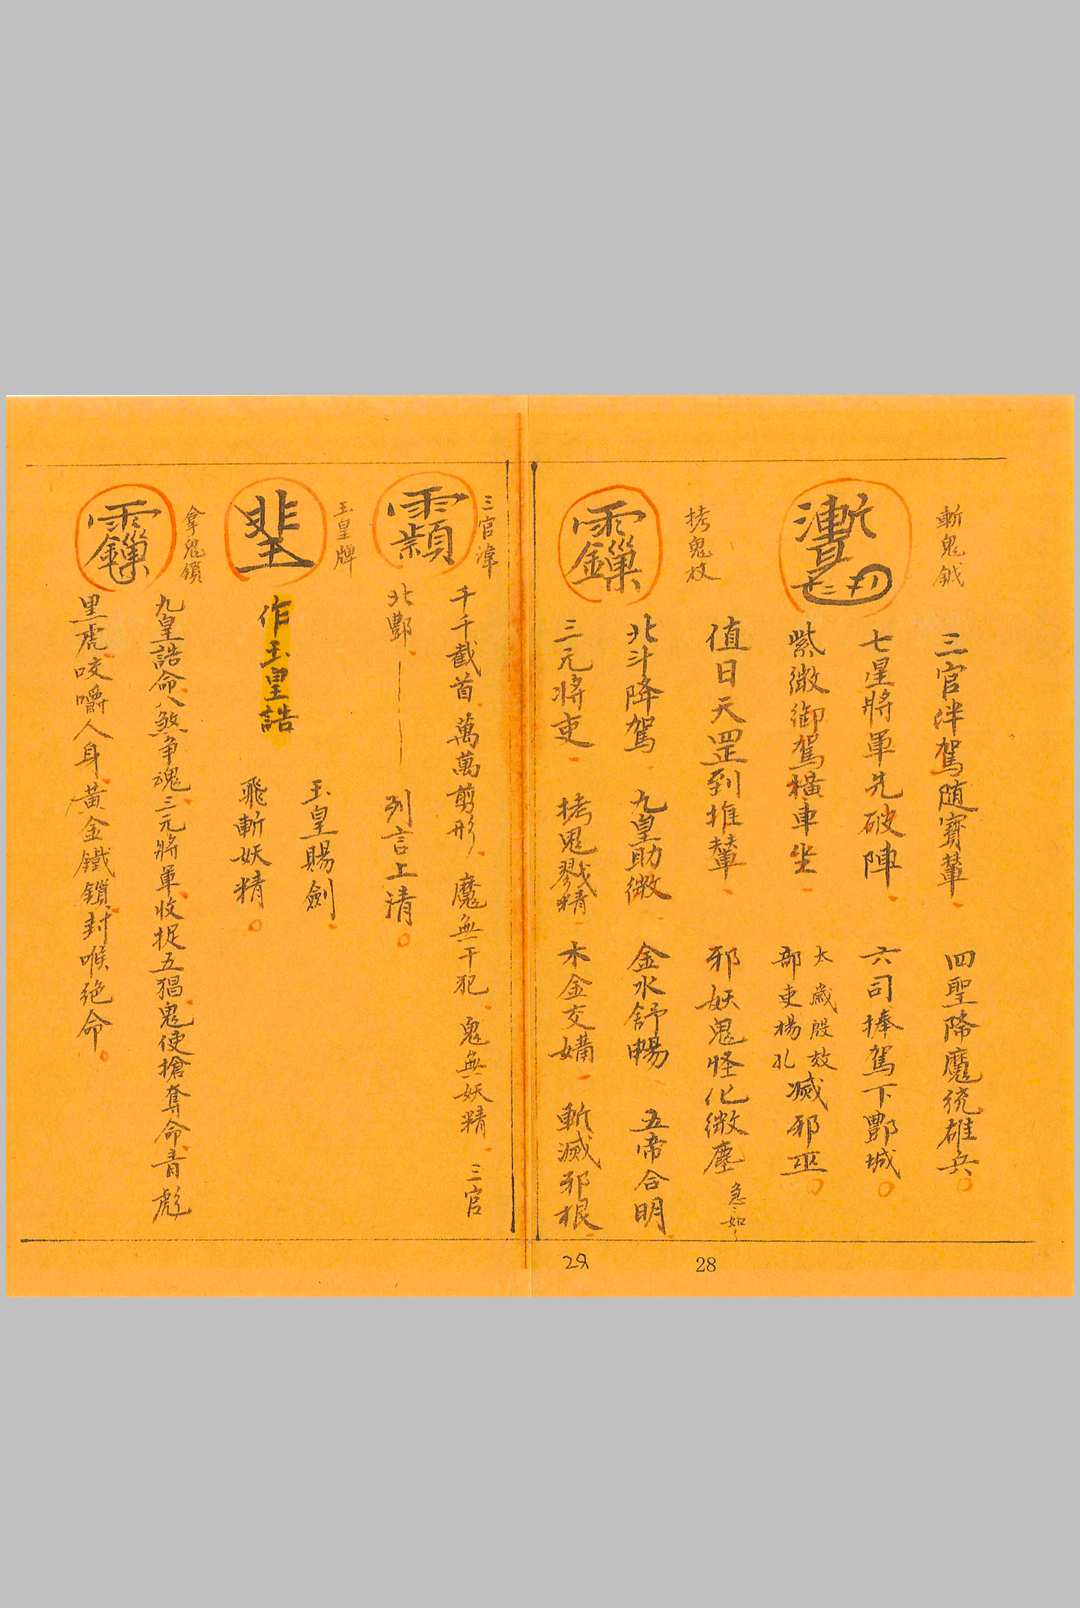 斬鬼鉞
三官泮駕随寶輦 四聖降魔統雄兵
七星將軍先破陣 六司捧駕下酆城
紫微御駕橫車坐 太歲殷效部吏楊孔滅邪巫
值日天罡到推輦 邪妖鬼怪化微塵 急如
拷鬼杖
北斗降駕 九皇助微 金水舒暢 五帝合明
三元將吏 拷鬼戮精 木金交媾 斬滅邪根
三官諱
千千截首 萬萬剪形 魔無干犯 鬼無妖精 三官
北酆 列言上清
玉皇牌
作玉皇誥
玉皇賜劍
飛斬妖精
拿鬼鎖
九皇誥命 八煞爭魂 三元將軍收捉五猖鬼使搶奪命 青彪
黑虎咬嚼人身 黃金鐵鎖封喉絕命
28
28